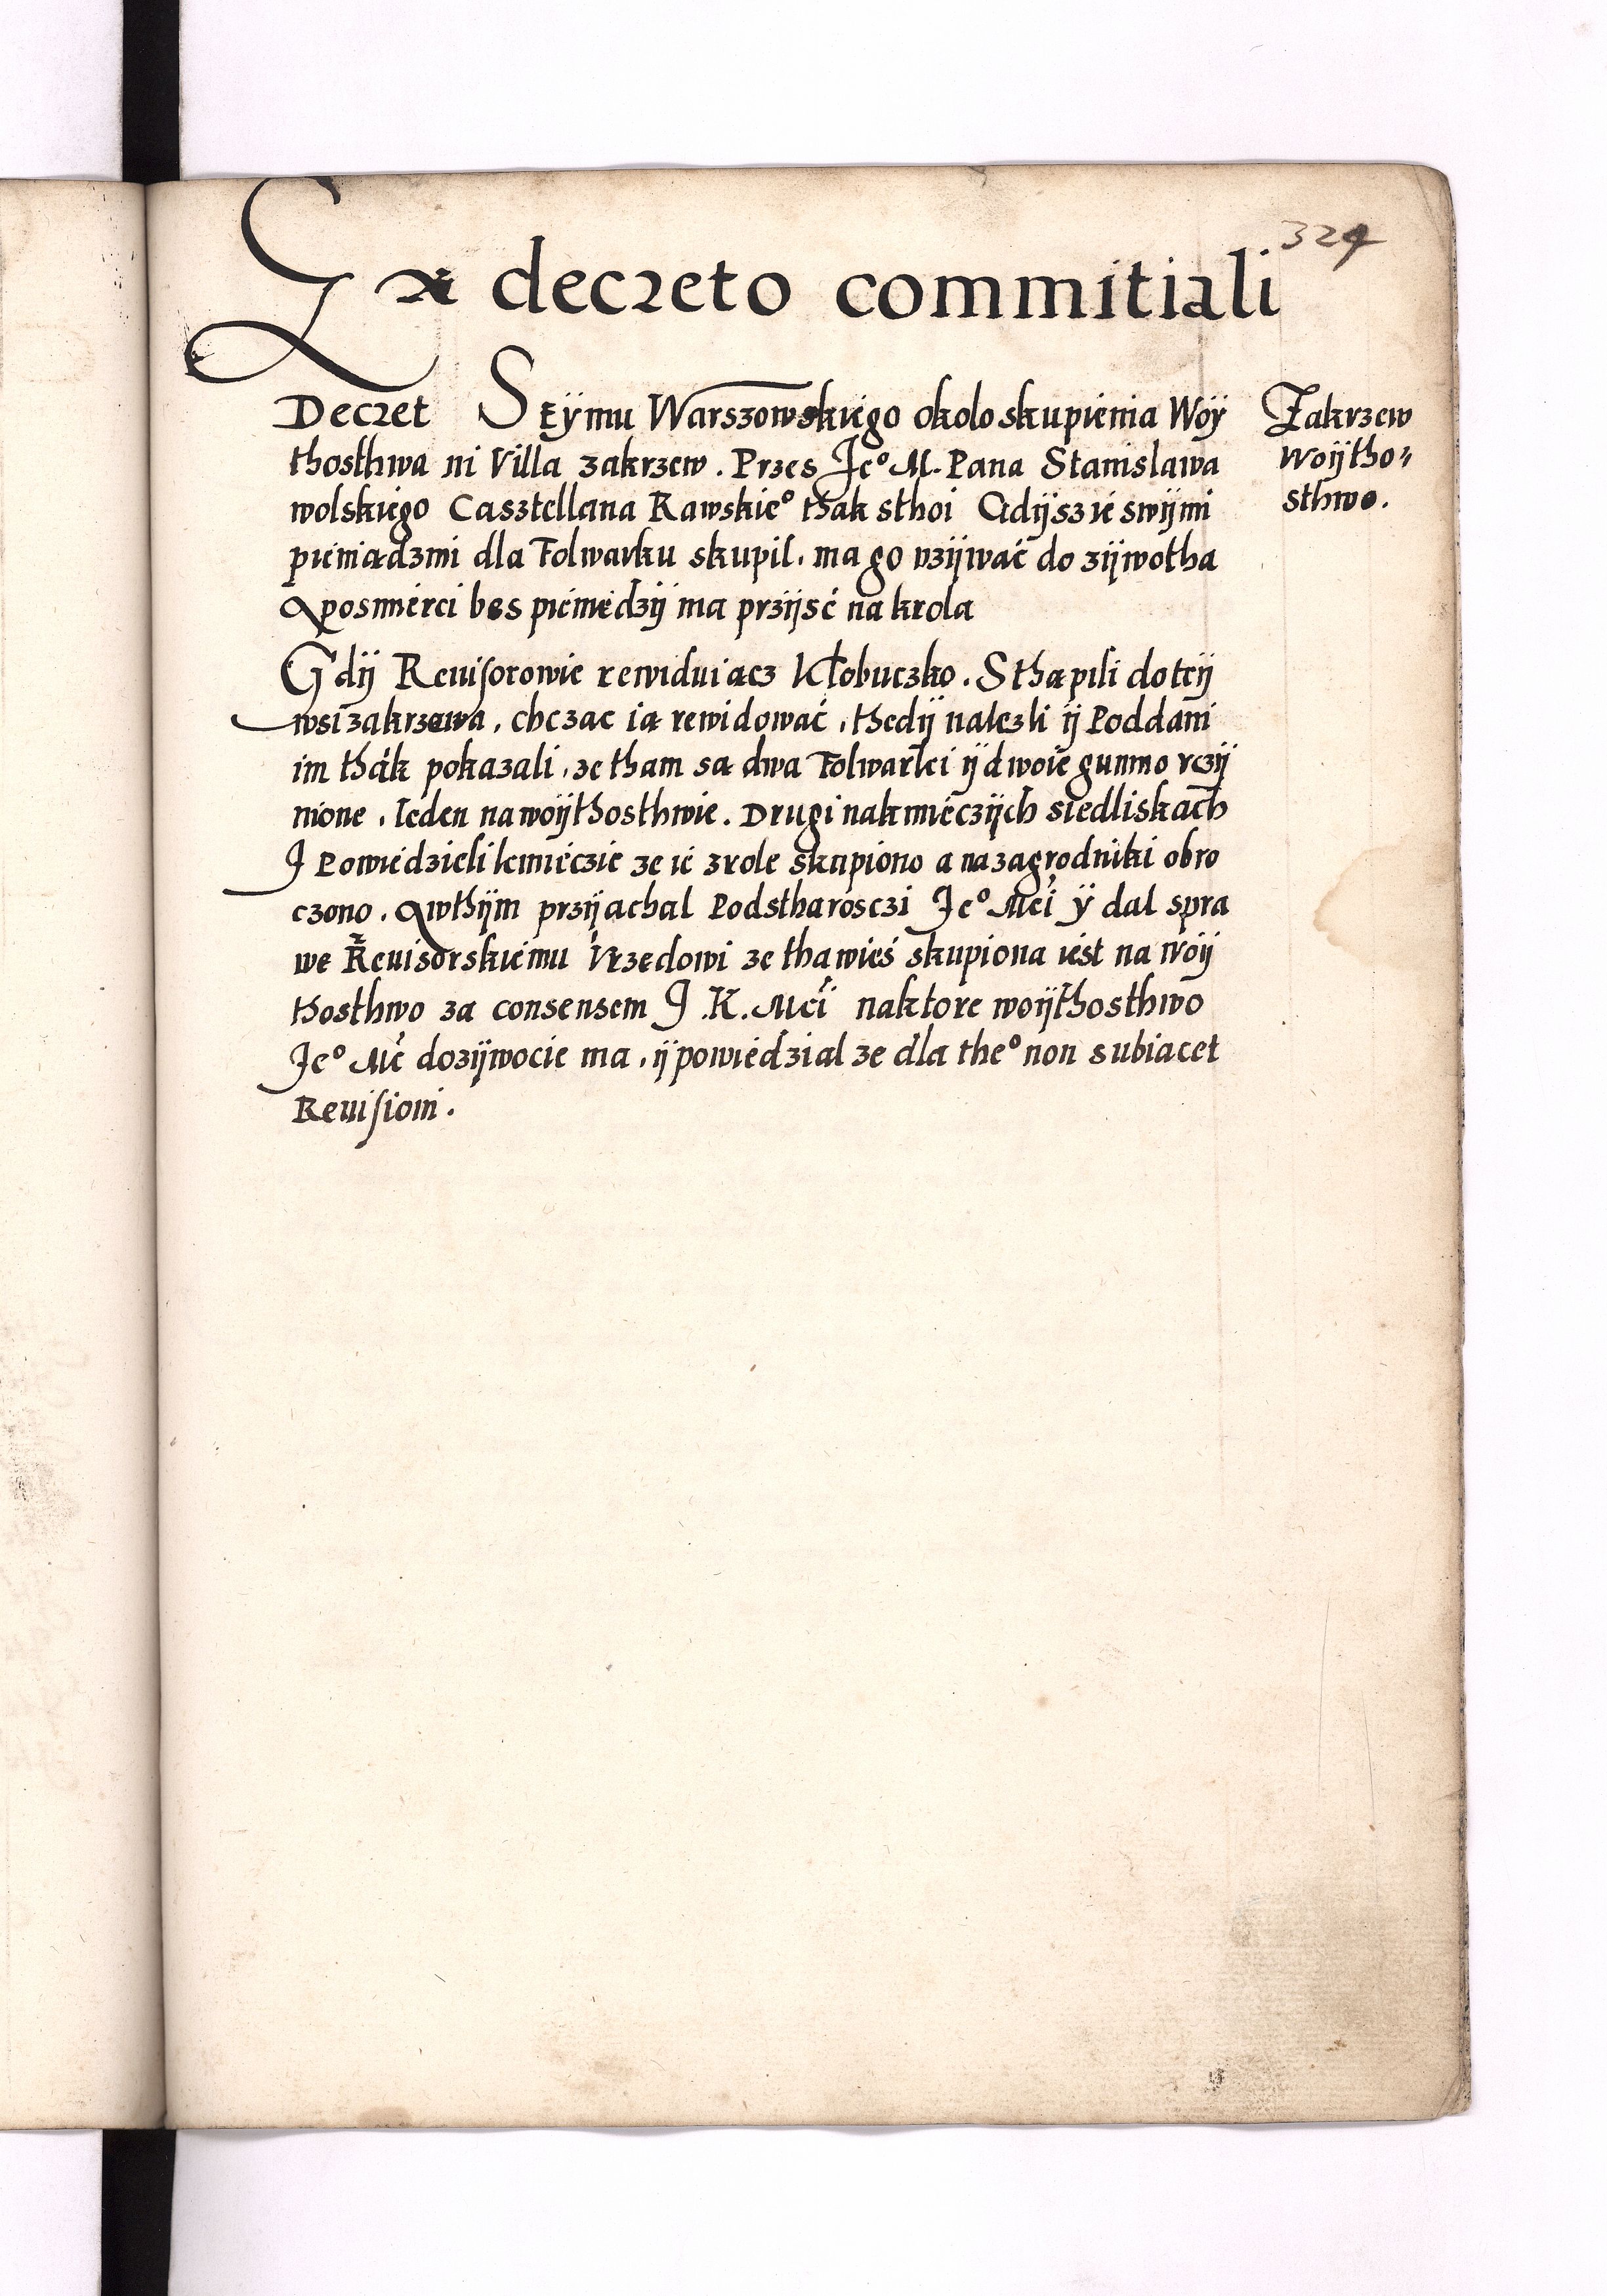 324
Ex decreto commitiali
Decret Seÿmu Warszowskiego okolo skupienia Woÿ
thosthwa ni Villa zakrzew. Przes Jeº M. Pana Stanislawa
wolskiego Casztellana Rawskieº thak sthoi Gdÿ szie swÿmi
pieniądzmi dla Folwarku skupil. ma go vzÿwać do zÿwotha
A po smierci bes pieniedzÿ ma przÿsć na krola
Zakrzew
Woÿtho⸗
sthwo.
Gdÿ Reuisorowie rewiduiącz Kłobuczko. Sthąpili do teÿ
wsi zakrzewa, chcząc ią rewidować, thedÿ nalezli ÿ Poddani
im thák pokazali, ze tham są dwa Folwarki ÿ dwoie gumno vczÿ
nione, Ieden na woÿthosthwie. Drugi na kmieczÿch siedliskach
J Powiedzieli kmieczie ze ie z role skupiono a na zagrodniki obro
czono. A wthÿm przÿachal Podstharosczi Jeº Mći ÿ dal spra
we Reuisorskiemu Vrzedowi ze tha wieś skupiona iest na woÿ
thosthwo za consensem J. K. Mći na ktore woÿthosthwo
Jeº Mć dozÿwocie ma, ÿ powiedzial ze dla theº non subiacet
Reuisioni.